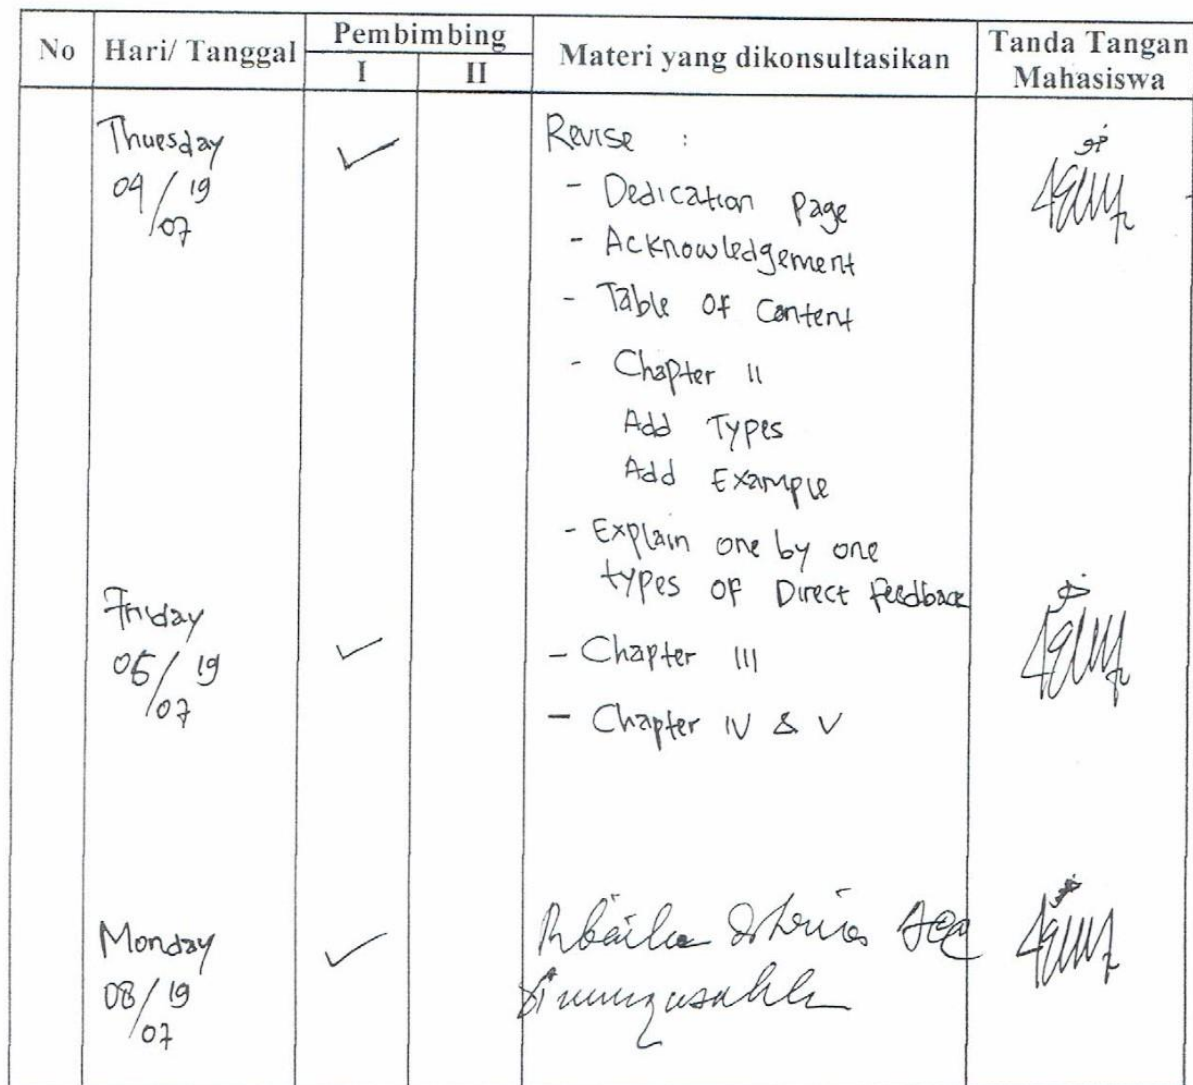 No Hari/ Tanggal Pembimbing Materi yang dikonsultasikan Tanda Tangan Mahasiswa
I II
Thuesday Revise :
04/19
/07
- Dedication Page
- Acknowledgement
- Table Of Content
- Chapter II
Add Types
Add Example
- Explain one by one
types of Direct feedback
Friday
05/19
/07
- Chapter III
- Chapter IV & V
Monday
08/19
/07